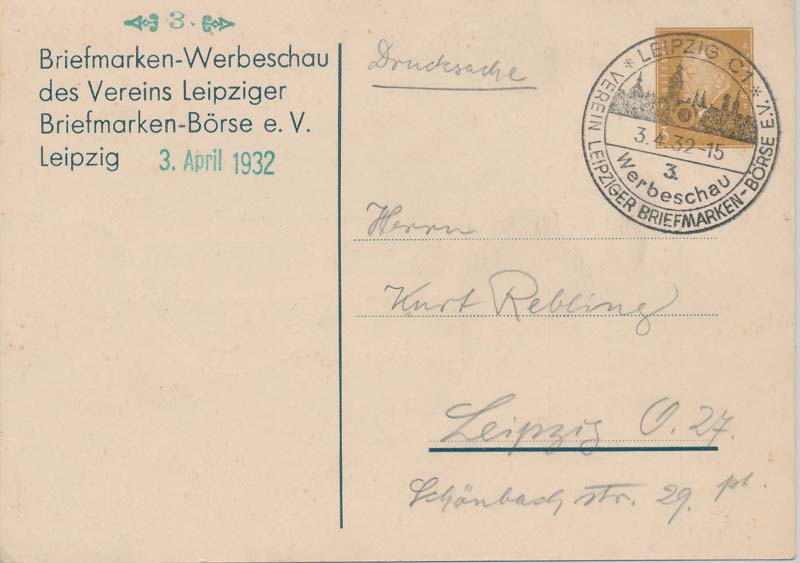 3.
Briefmarken-Werbeschau
des Vereins Leipziger
Briefmarken-Börse e. V.
Leipzig 3. April 1932
Drucksache
* LEIPZIG C1 *
3.4.32-15
3.
Werbeschau
VEREIN LEIPZIGER BRIEFMARKEN-BÖRSE E.V.
Herrn
Kurt Rebling
Leipzig O. 27.
Schönbach str. 29. pt.